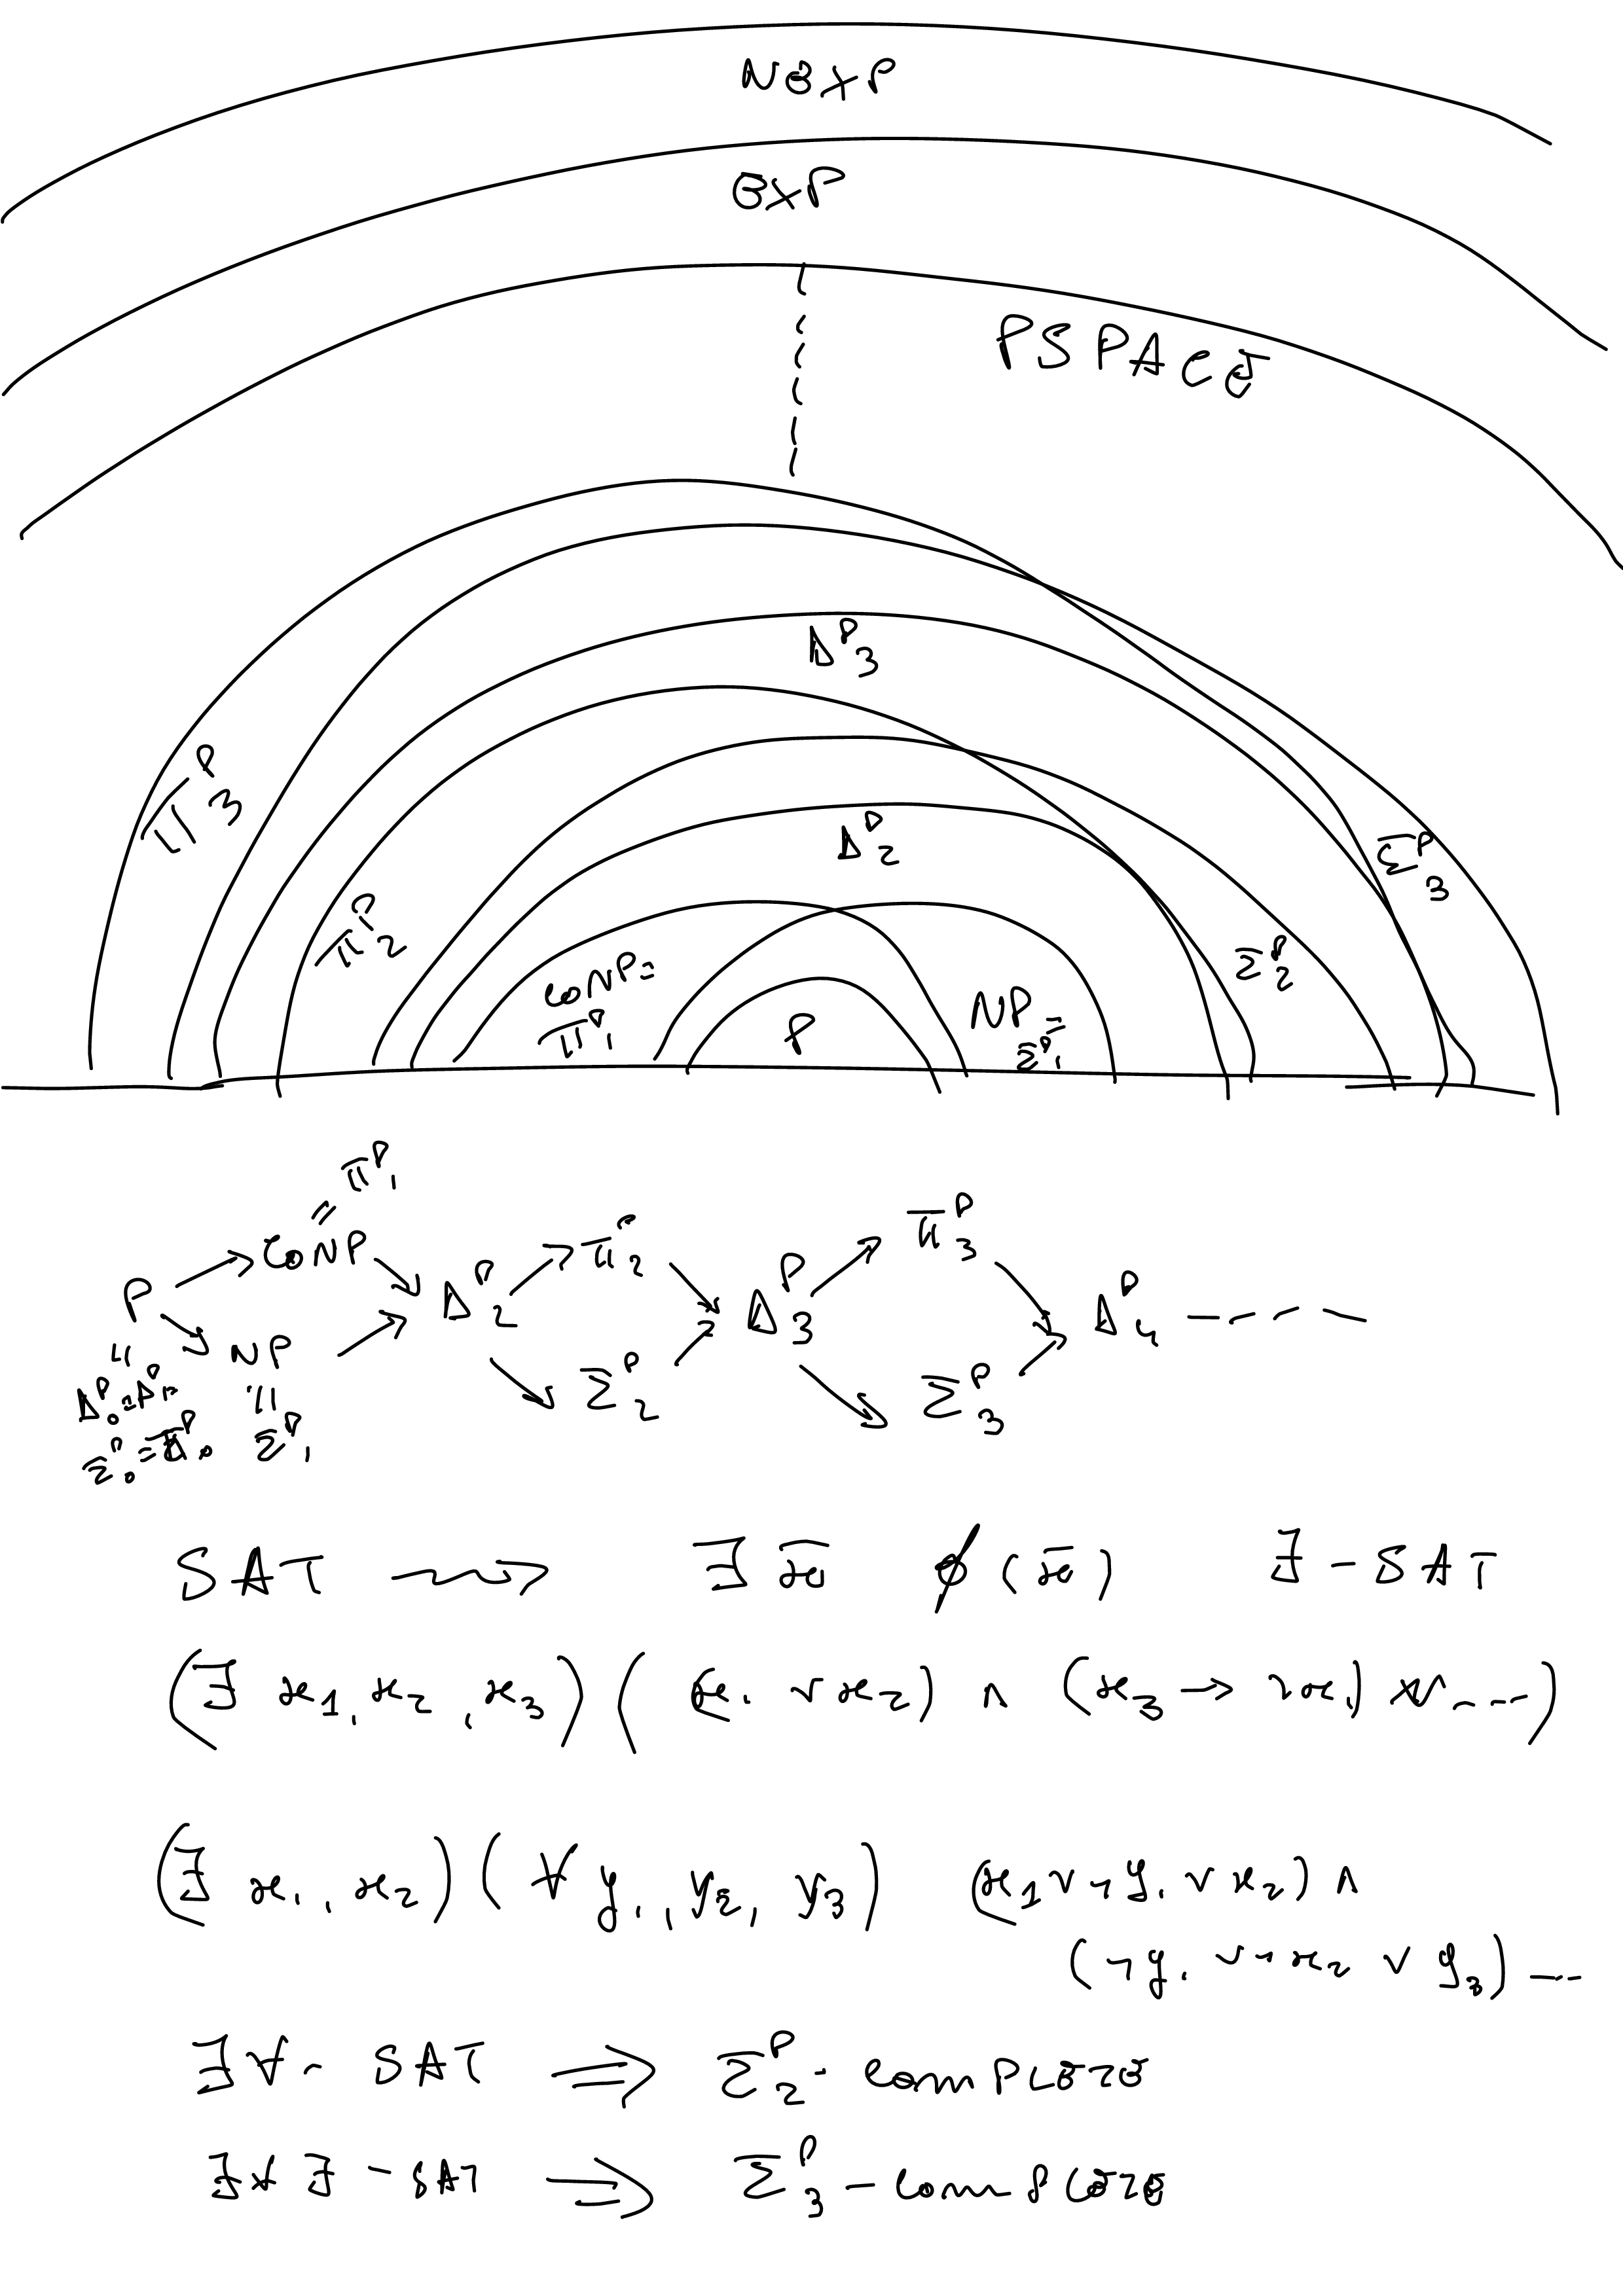 NEXP
EXP
PSPACE
Δ^P_3
Π^P_3
Δ^P_2
Σ^P_3
Π^P_2
Σ^P_2
coNP=
Π^P_1
P
NP
Σ^P_1
Π^P_1
=
coNP
Π^P_2
Π^P_3
P
Δ^P_2
Δ^P_3
Δ^P_4 ----
NP
Σ^P_2
Σ^P_3
Δ^P_0=Δ^P_1
Σ^P_0=Π^P_0
Σ^P_1
SAT ⟿ ∃ x̄ ϕ(x̄) ∃-SAT
(∃ x_1, x_2, x_3) ( (x_1 ∨ x_2) ∧ (x_3 → ¬x_1) ----)
(∃ x_1, x_2) (∀ y_1, y_2, y_3) (x_1 ∨ ¬y_1 ∨ x_2) ∧
(¬y_1 ∨ ¬x_2 ∨ y_3) ---
∃∀- SAT ⟹ Σ^P_2-complete
∃∀∃-SAT ⟹ Σ^P_3-complete